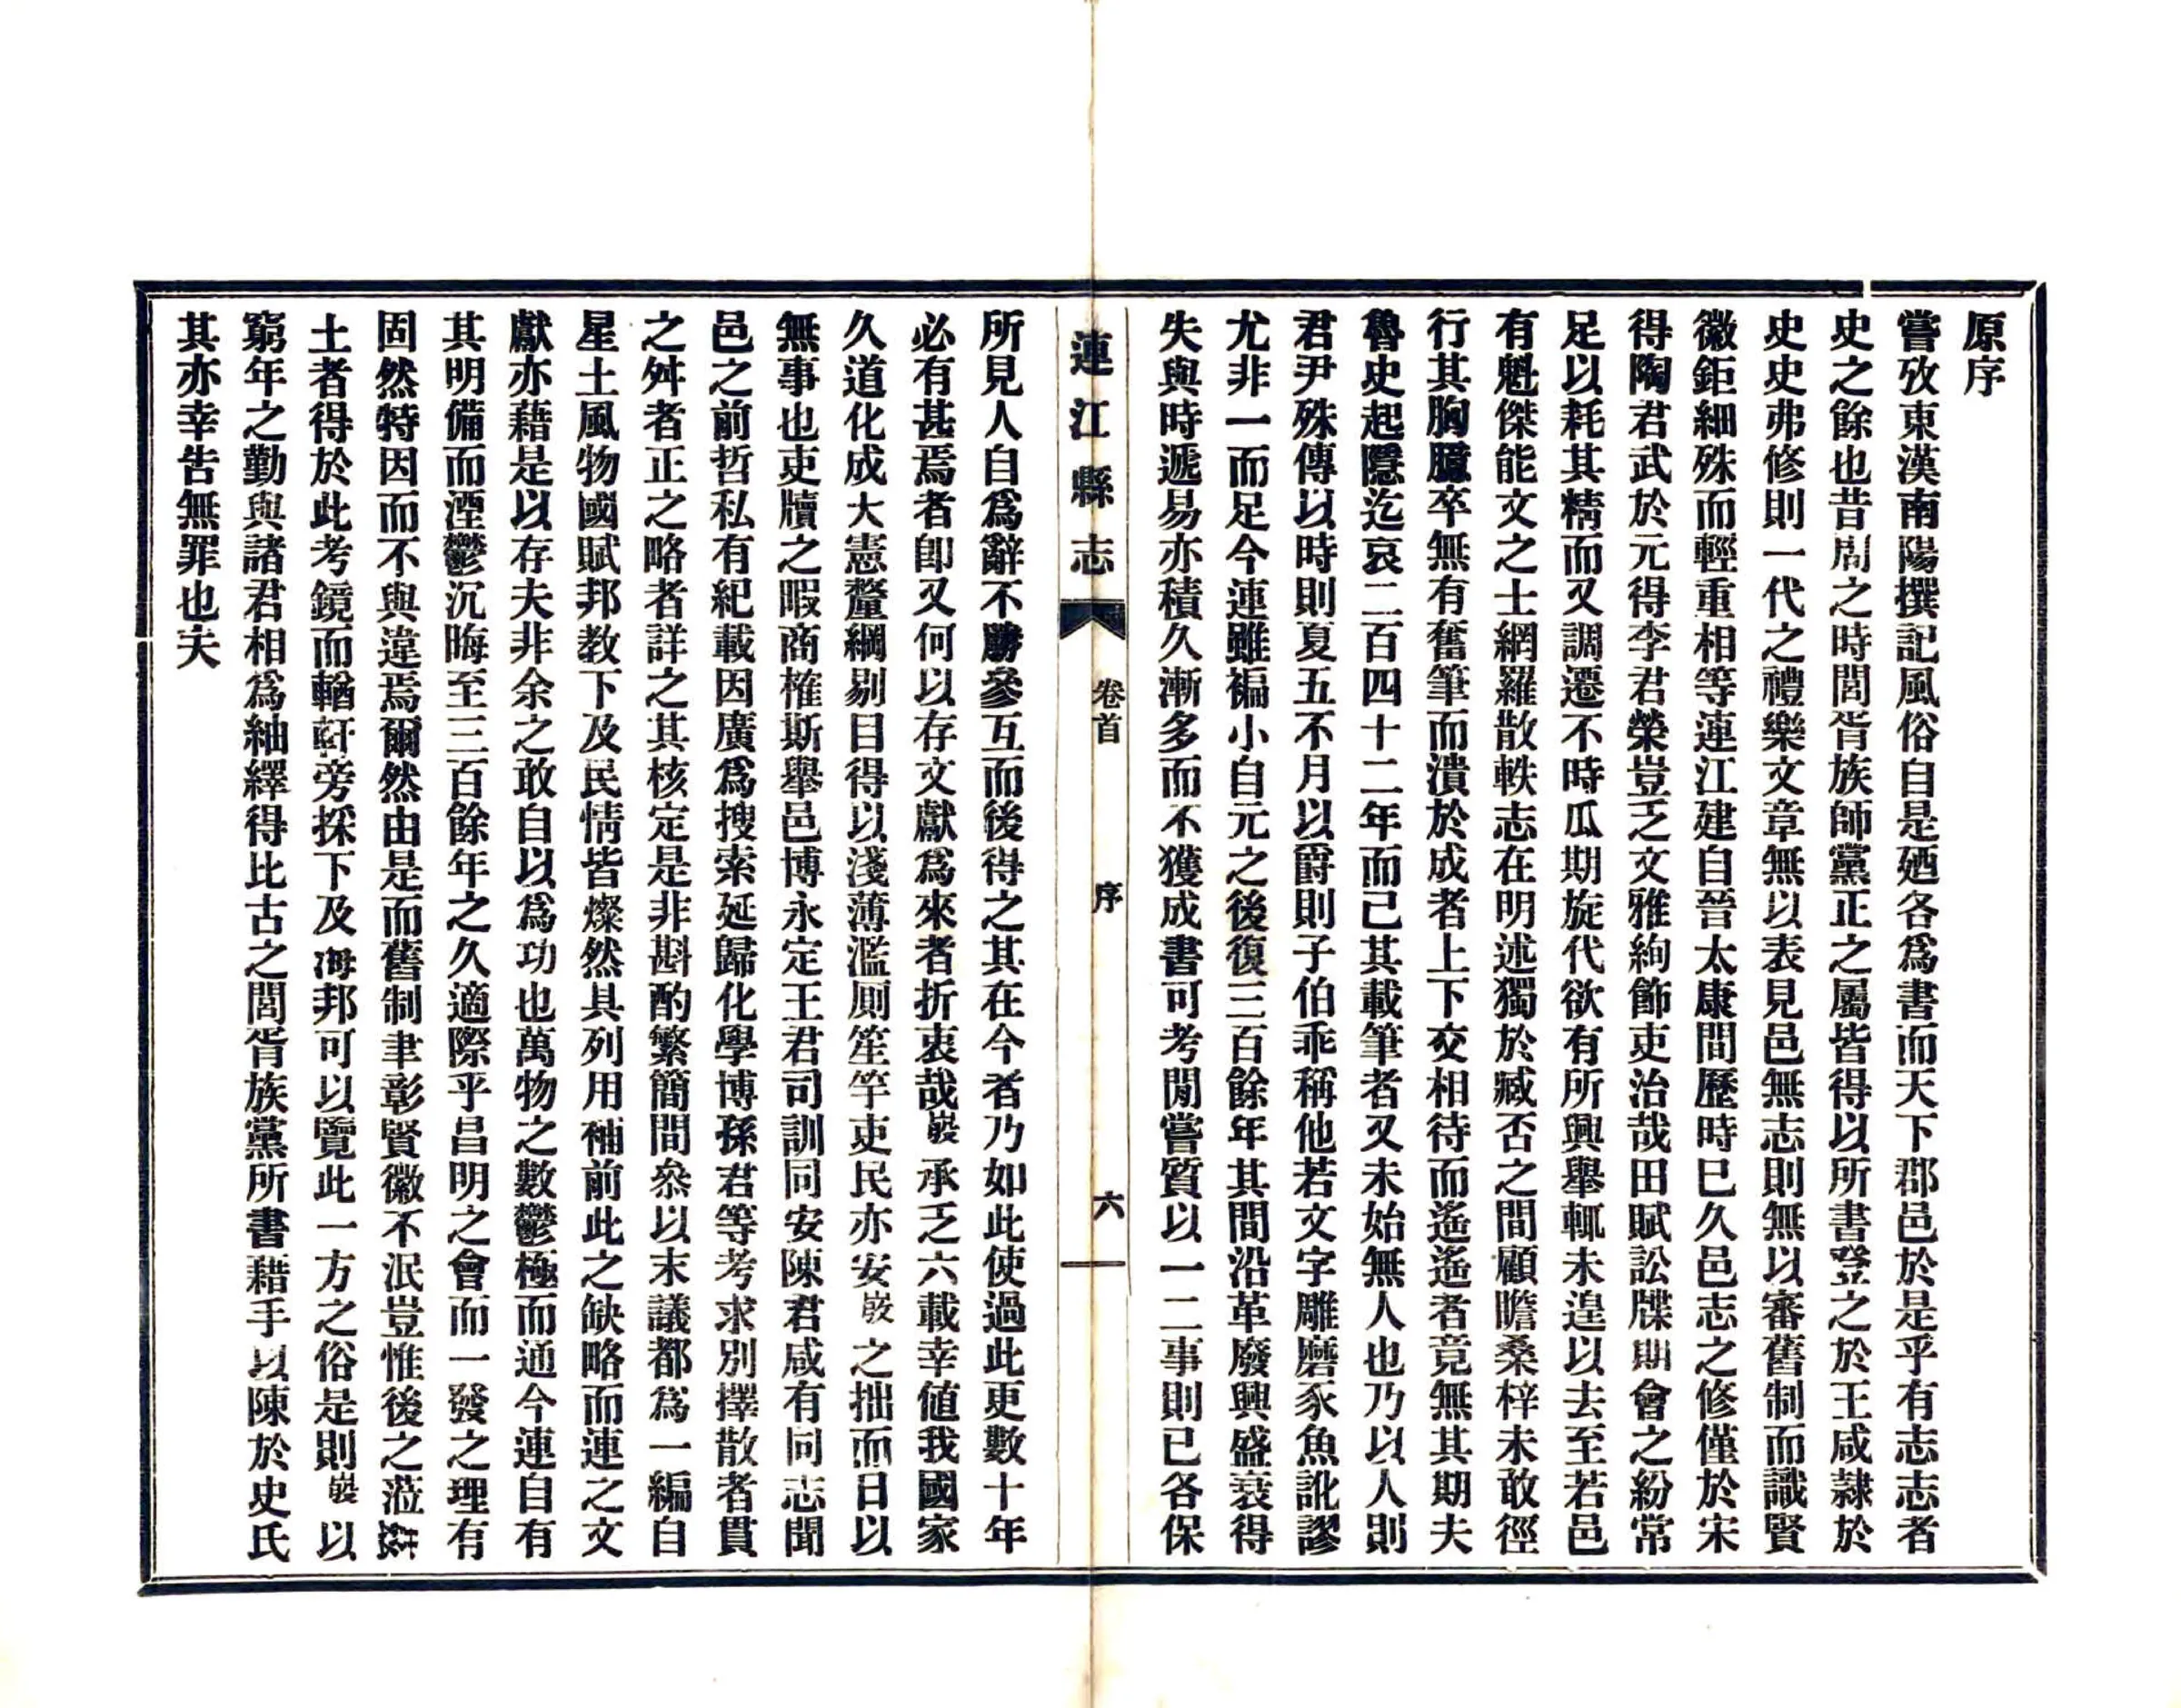 原序
嘗攷東漢南陽撰記風俗自是廼各爲書而天下郡邑於是乎有志志者
史之餘也昔周之時閭胥族師黨正之屬皆得以所書登之於王咸隸於
史史弗修則一代之禮樂文章無以表見邑無志則無以審舊制而識賢
徽鉅細殊而輕重相等連江建自晉太康間歷時巳久邑志之修僅於宋
得陶君武於元得李君榮豈乏文雅絢飾吏治哉田賦訟牒期會之紛常
足以耗其精而又調遷不時瓜期旋代欲有所興舉輒未遑以去至若邑
有魁傑能文之士網羅散軼志在明述獨於臧否之間顧瞻桑梓未敢徑
行其胸臆卒無有奮筆而潰於成者上下交相待而遙遙者竟無其期夫
魯史起隱迄哀二百四十二年而已其載筆者又未始無人也乃以人則
君尹殊傳以時則夏五不月以爵則子伯乖稱他若文字雕磨豕魚訛謬
尤非一而足今連雖褊小自元之後復三百餘年其間沿革廢興盛衰得
失與時遞易亦積久漸多而不獲成書可考閒嘗質以一二事則已各保
連江縣志 卷首 序 六
所見人自爲辭不勝參互而後得之其在今者乃如此使過此更數十年
必有甚焉者卽又何以存文獻爲來者折衷哉承乏六載幸値我國家
久道化成大憲釐綱剔目得以淺薄濫厠笙竽吏民亦安之拙而日以
無事也吏牘之暇商榷斯舉邑博永定王君司訓同安陳君咸有同志聞
邑之前哲私有紀載因廣爲搜索延歸化學博孫君等考求別擇散者貫
之舛者正之略者詳之其核定是非斟酌繁簡間叅以末議都爲一編自
星土風物國賦邦教下及民情皆燦然具列用補前此之缺略而連之文
獻亦藉是以存夫非余之敢自以爲功也萬物之數鬱極而通今連自有
其明備而湮鬱沉晦至三百餘年之久適際乎昌明之會而一發之理有
固然特因而不與違焉爾然由是而舊制聿彰賢徽不泯豈惟後之蒞茲
土者得於此考鏡而輶軒旁採下及海邦可以覽此一方之俗是則以
窮年之勤與諸君相爲紬繹得比古之閭胥族黨所書藉手以陳於史氏
其亦幸告無罪也夫